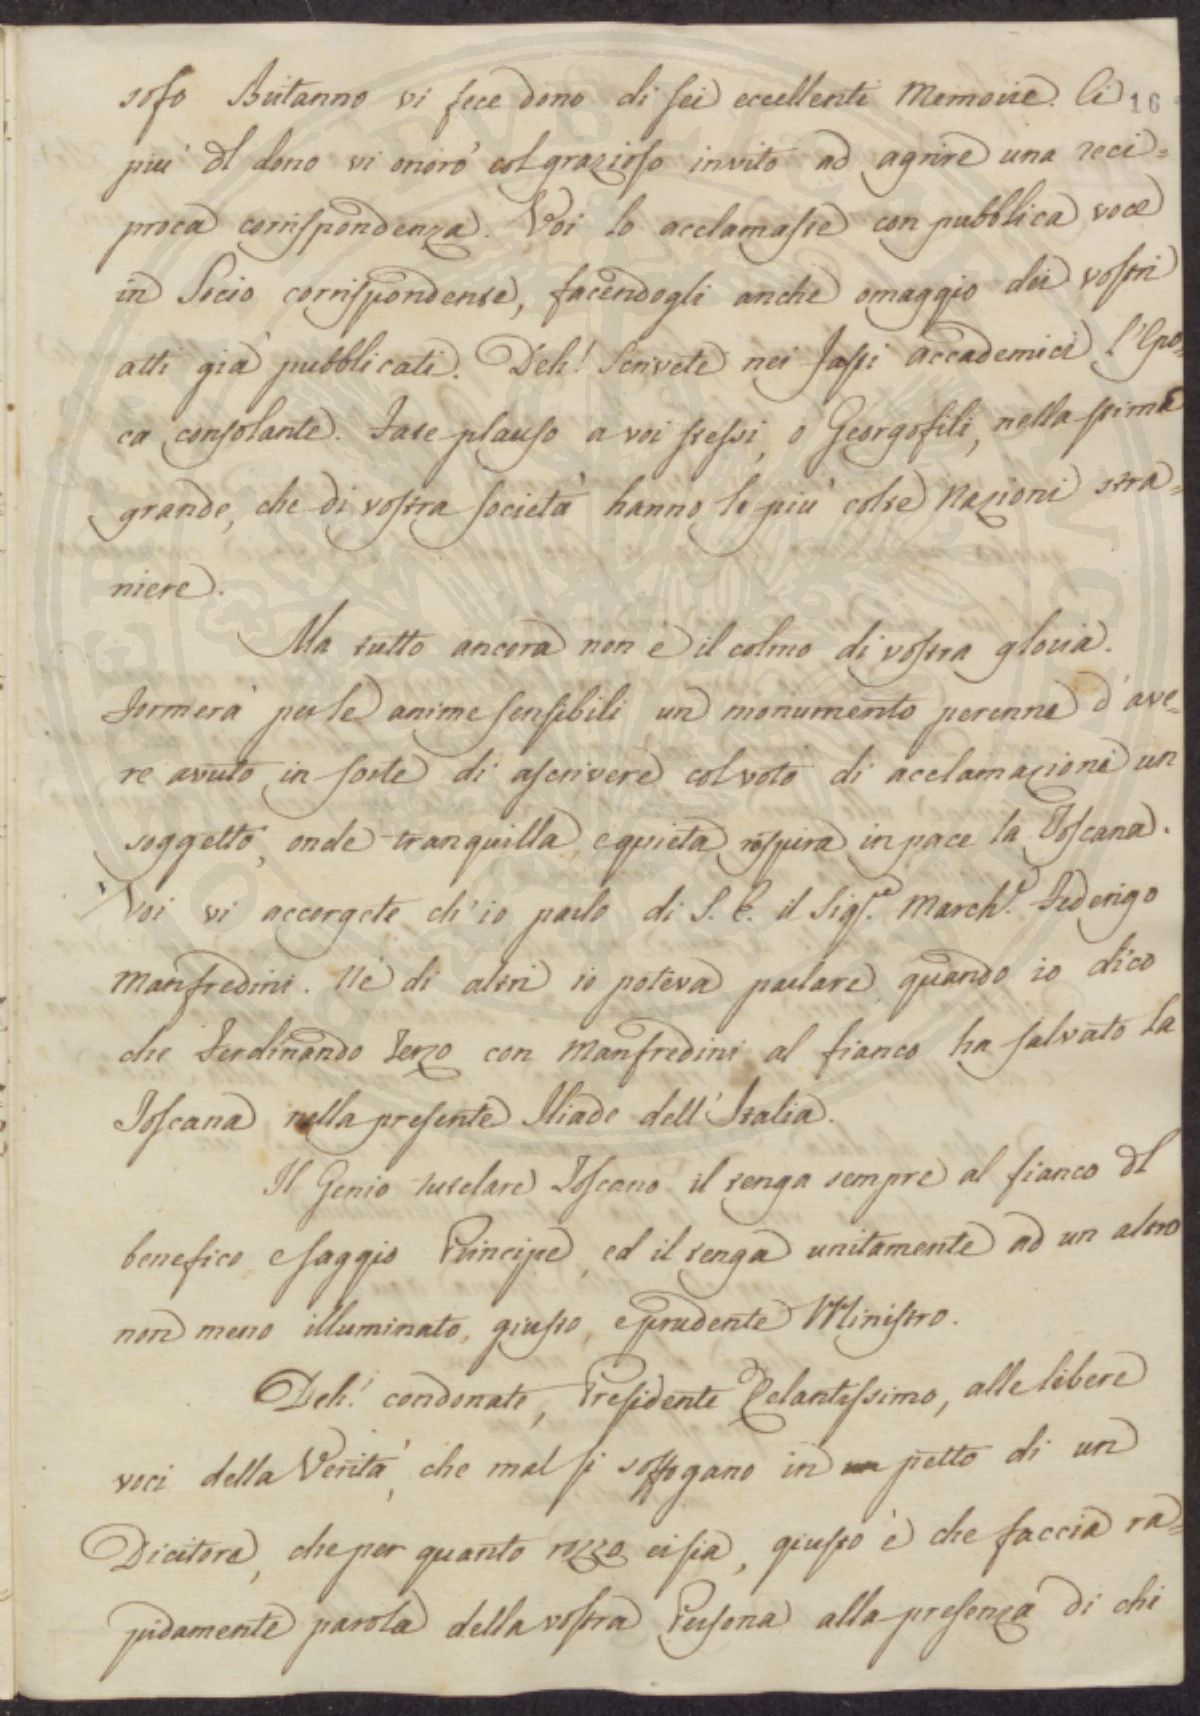 sofo Britanno vi fece dono di sei eccellenti Memorie. Ei 16
piu' dl dono vi onorò col grazioso invito ad aprire una reci=
proca corrispondenza. Voi lo acclamaste con pubblica voce
in Socio corrispondente, facendogli anche omaggio dei vostri
atti già pubblicati. Deh! Scrivete nei Fasti accademici l'Epo=
ca consolante. Fate plauso a voi stessi, o Georgofili, nella stima
grande, che di vostra società hanno le più colte Nazioni stra=
niere.
Ma tutto ancora non è il colmo di vostra gloria.
Formerà per le anime sensibili un monumento perenne d'ave=
re avuto in sorte di ascrivere col voto di acclamazione un
soggetto, onde tranquilla, e quieta respira in pace la Toscana.
Voi vi accorgete ch'io parlo di S. E. il Sigr.e March.e Federigo
Manfredini. Nè di altri io poteva parlare, quando io dico
che Ferdinando Terzo con Manfredini al fianco ha salvato la
Toscana nella presente Iliade dell'Italia.
Il Genio tutelare Toscano il tenga sempre al fianco dl
benefico e saggio Principe, ed il tenga unitamente ad un altro
non meno illuminato, giusto, e prudente Ministro.
Deh! condonate, Presidente Zelantissimo, alle libere
voci della Verità, che mal si soffogano in petto di un
Dicitore, che per quanto rozzo ei sia, giusto è che faccia ra=
pidamente parola della vostra Persona alla presenza di chi